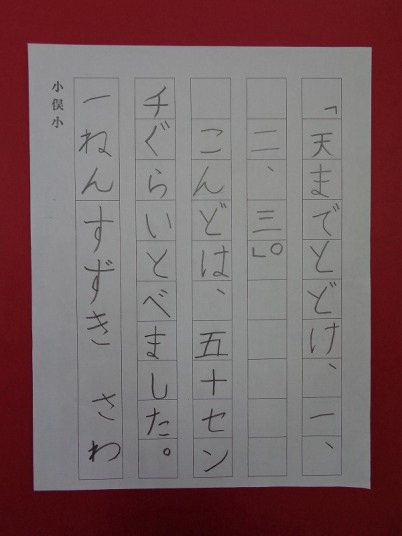 「天までとどけ、一、
二、三。」
こんどは、五十セン
チぐらいとべました。
一ねんすずき さわ
小俣小